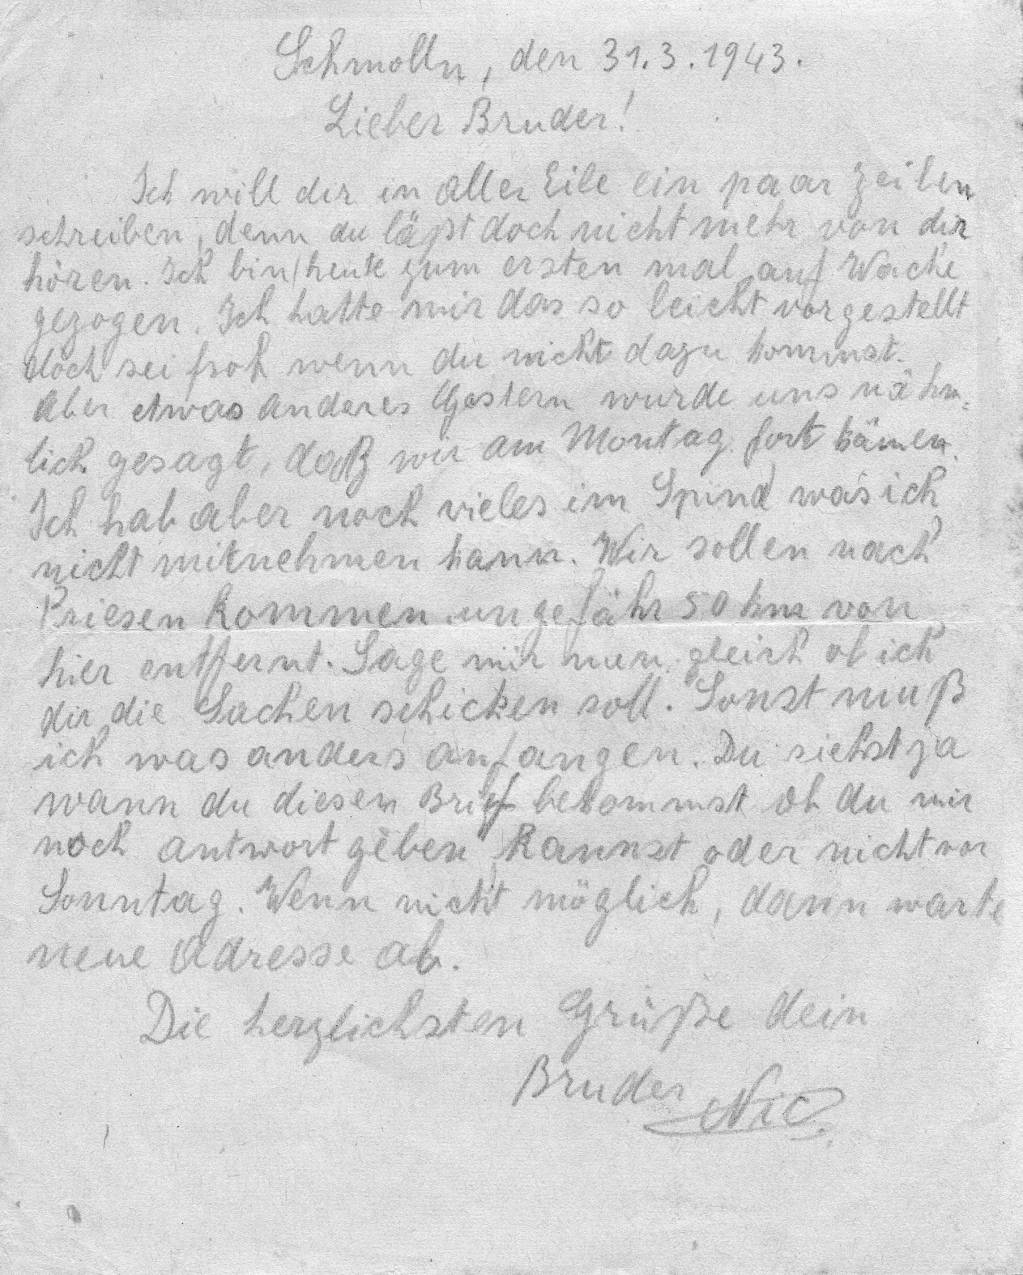 Schmolln, den 31.3.1943.
Lieber Bruder!
Ich will dir in aller Eile ein paar Zeilen
schreiben, denn du läßt doch nicht mehr von dir
hören. Ich bin heute zum ersten mal auf Wache
gezogen. Ich hatte mir das so leicht vorgestellt
doch sei froh wenn du nicht dazu kommst.
Aber etwas anderes Gestern wurde uns nähm-
lich gesagt, daß wir am Montag fort kämen.
Ich hab aber noch vieles im Spind was ich
nicht mitnehmen kann. Wir sollen nach
Priesen kommen ungefähr 50 km von
hier entfernt. Sage mir nun gleich ob ich
dir die Sachen schicken soll. Sonst muß
ich was anders anfangen. Du siehst ja
wann du diesen Brief bekommst ob du mir
noch antwort geben kannst oder nicht vor
Sonntag. Wenn nicht möglich, dann warte
neue Adresse ab.
Die herzlichsten Grüße dein
Bruder Nic.